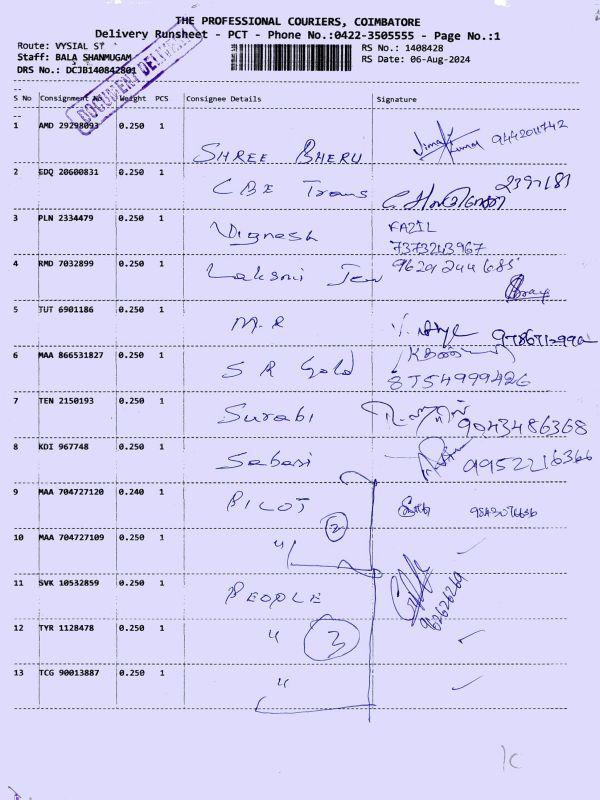 THE PROFESSIONAL COURIERS, COIMBATORE
Delivery Runsheet - PCT - Phone No.:0422-3505555 - Page No.:1
Route: VYSIAL ST
RS No.: 1408428
Staff: BALA SHANMUGAM
RS Date: 06-Aug-2024
DRS No.: DCJB140842801
DOCUMENT DELIVERY
S No Consignment No Weight PCS Consignee Details Signature
1 AMD 29298093 0.250 1 SHREE BHERU 9442011742
2 EDQ 20600831 0.250 1 CBE Trans 2397181
3 PLN 2334479 0.250 1 Vignesh FAZIL
7373243967
4 RMD 7032899 0.250 1 Laksmi Jew 9629244685
5 TUT 6901186 0.250 1 M.R
6 MAA 866531827 0.250 1 S R Gold
8754999426
7 TEN 2150193 0.250 1 Surabi 9043486368
8 KDI 967748 0.250 1 Sabari 9952216366
9 MAA 704727120 0.240 1 PILOT
2
10 MAA 704727109 0.250 1 "
11 SVK 10532859 0.250 1 PEOPLE
12 TYR 1128478 0.250 1 " 3
13 TCG 90013887 0.250 1 "